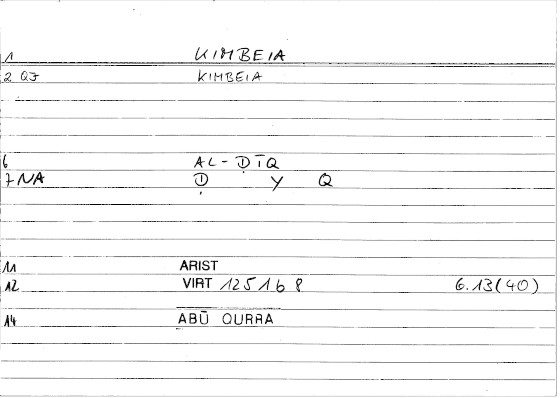 1 KIMBEIA
2 QJ KIMBEIA
6 AL-ḌĪQ
7 NA Ḍ Y Q
11 ARIST
12 VIRT 1251b8 6.13(40)
14 ABŪ QURRA